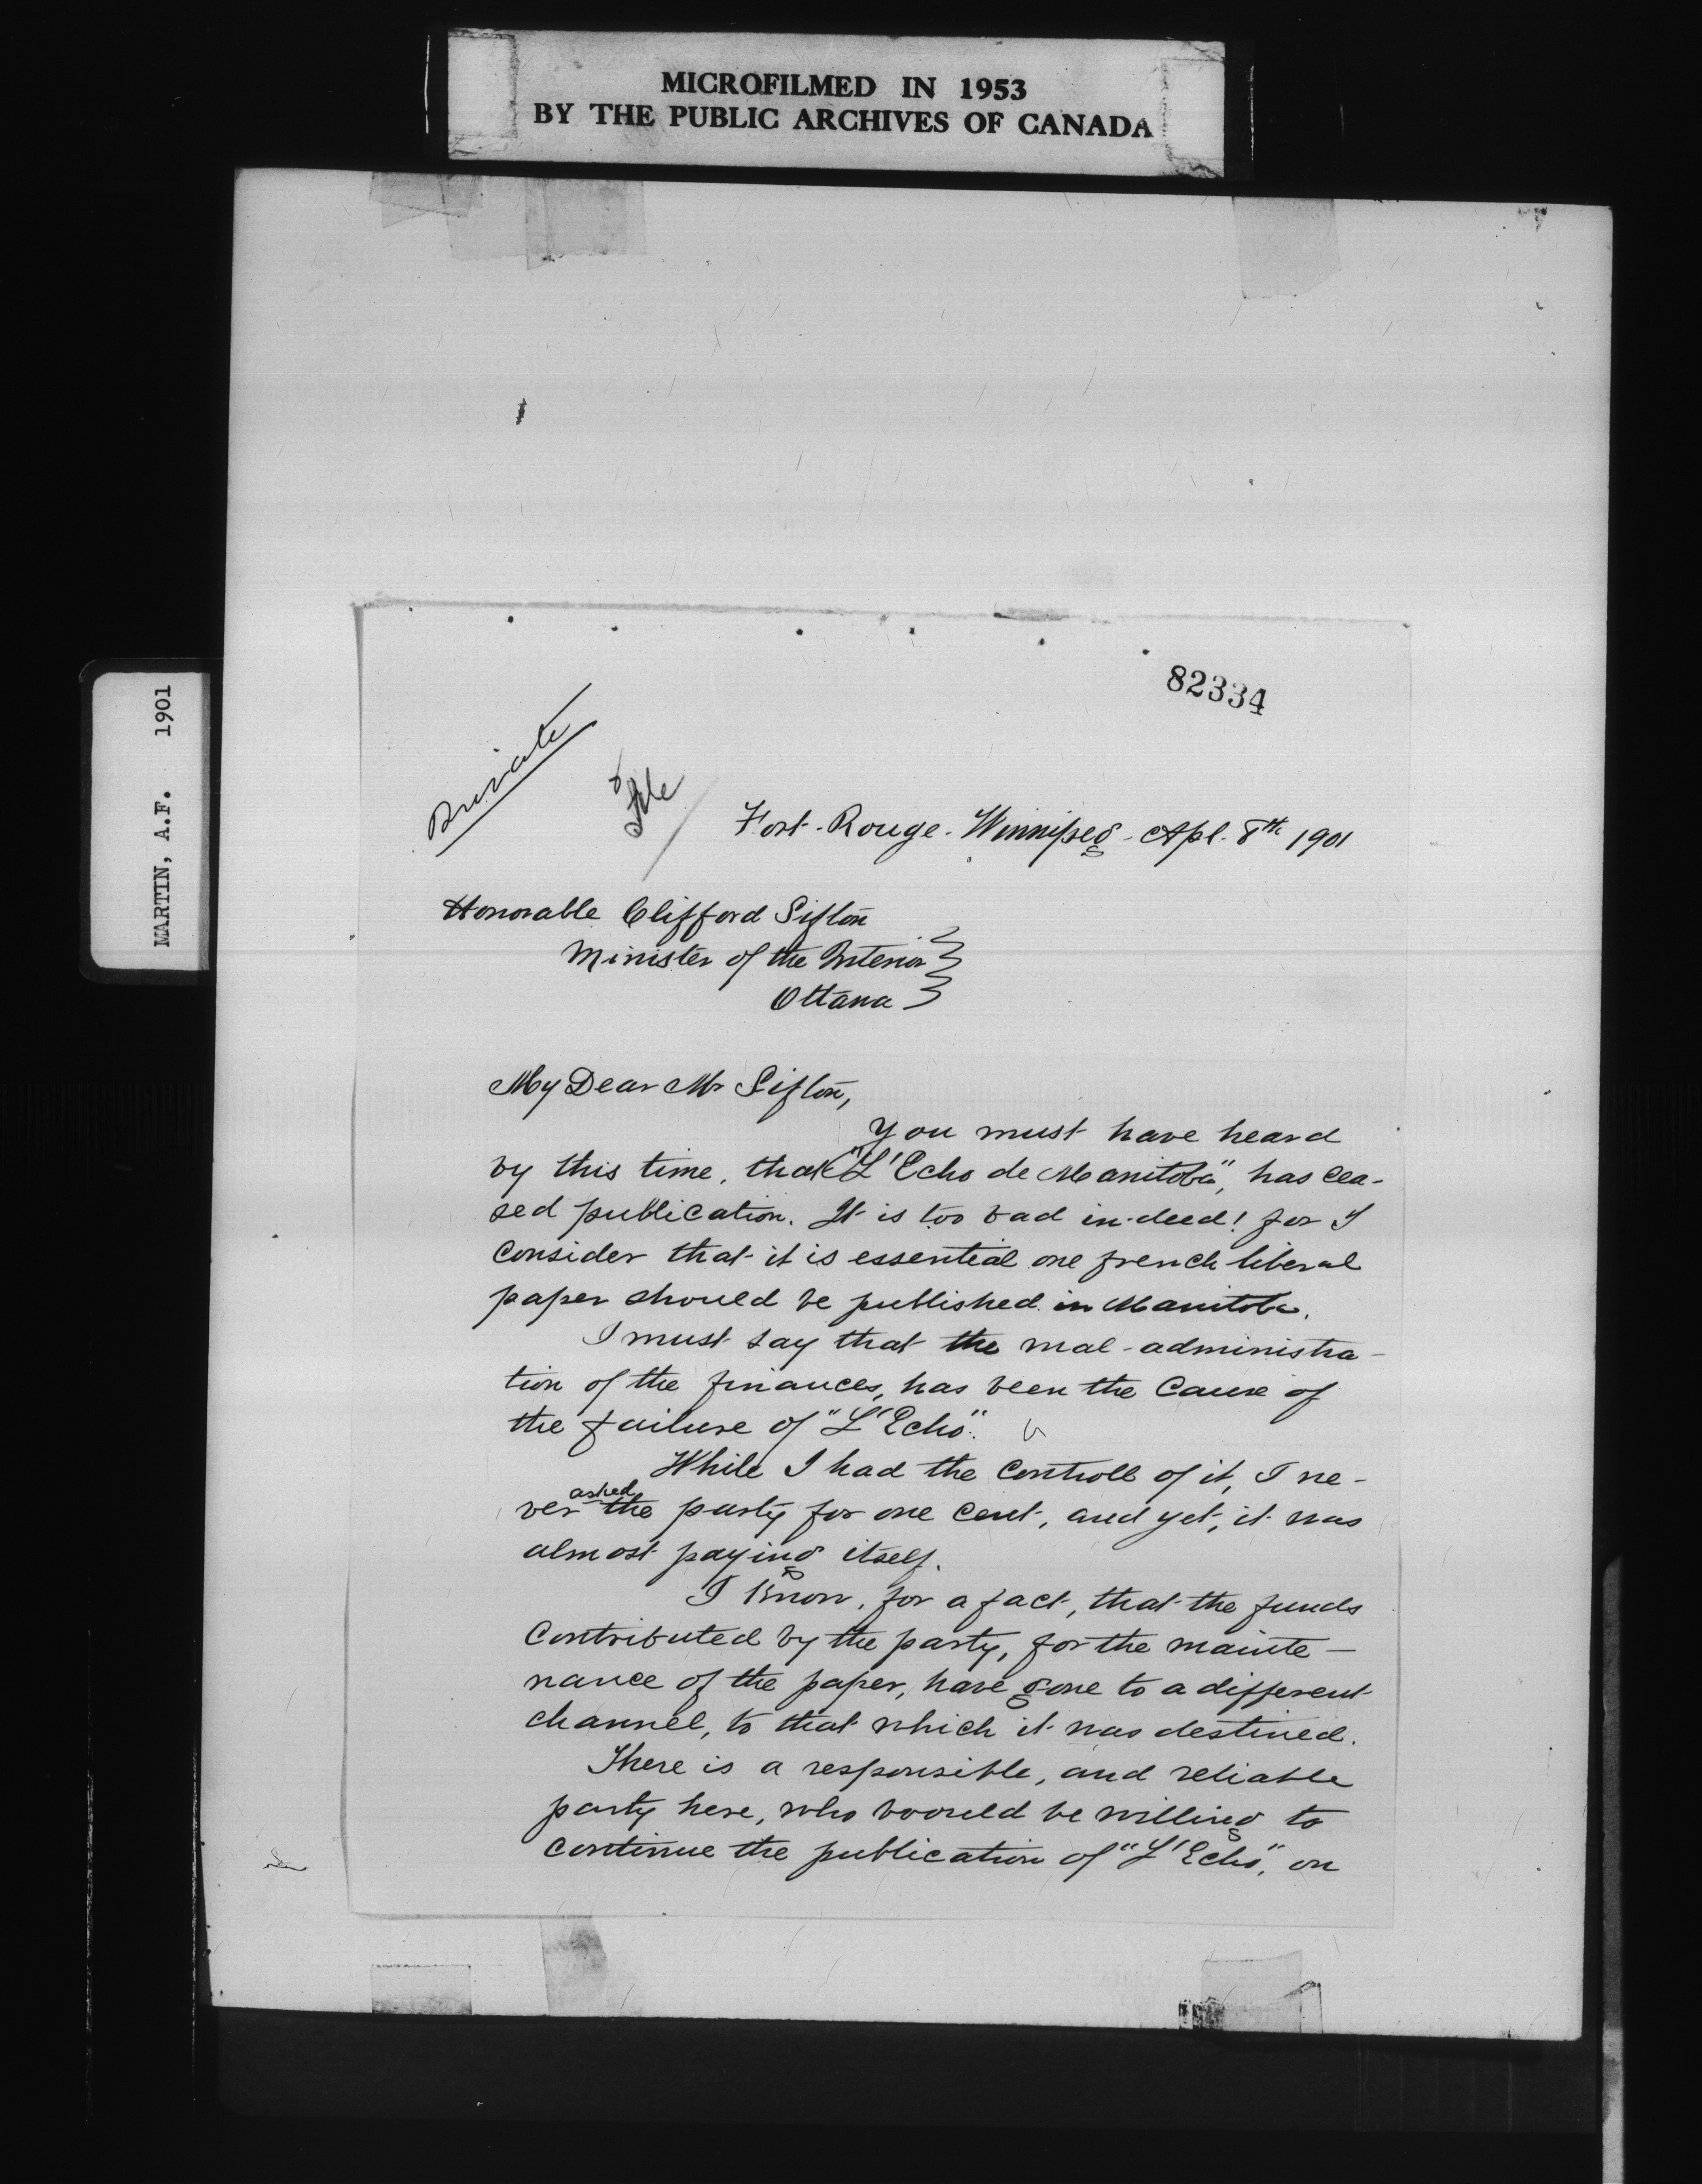 MICROFILMED IN 1953
BY THE PUBLIC ARCHIVES OF CANADA
MARTIN, A.F. 1901
82334
Private
File
Fort-Rouge-Winnipeg-Apl. 8th 1901
Honorable Clifford Sifton
Minister of the Interior
Ottawa
My Dear Mr Sifton,
You must have heard
by this time, that "L'Echo de Manitoba", has cea-
sed publication. It is too bad in-deed! for I
consider that it is essential one french liberal
paper should be published in Manitoba.
I must say that the mal-administra-
tion of the finances, has been the cause of
the failure of "L'Echo".
While I had the controll of it, I ne-
ver asked the party for one cent, and yet, it was
almost paying itself.
I know, for a fact, that the funds
contributed by the party, for the mainte-
nance of the paper, have gone to a different
channel, to that which it was destined.
There is a responsible, and reliable
party here, who woould be willing to
continue the publication of "L'Echo", on